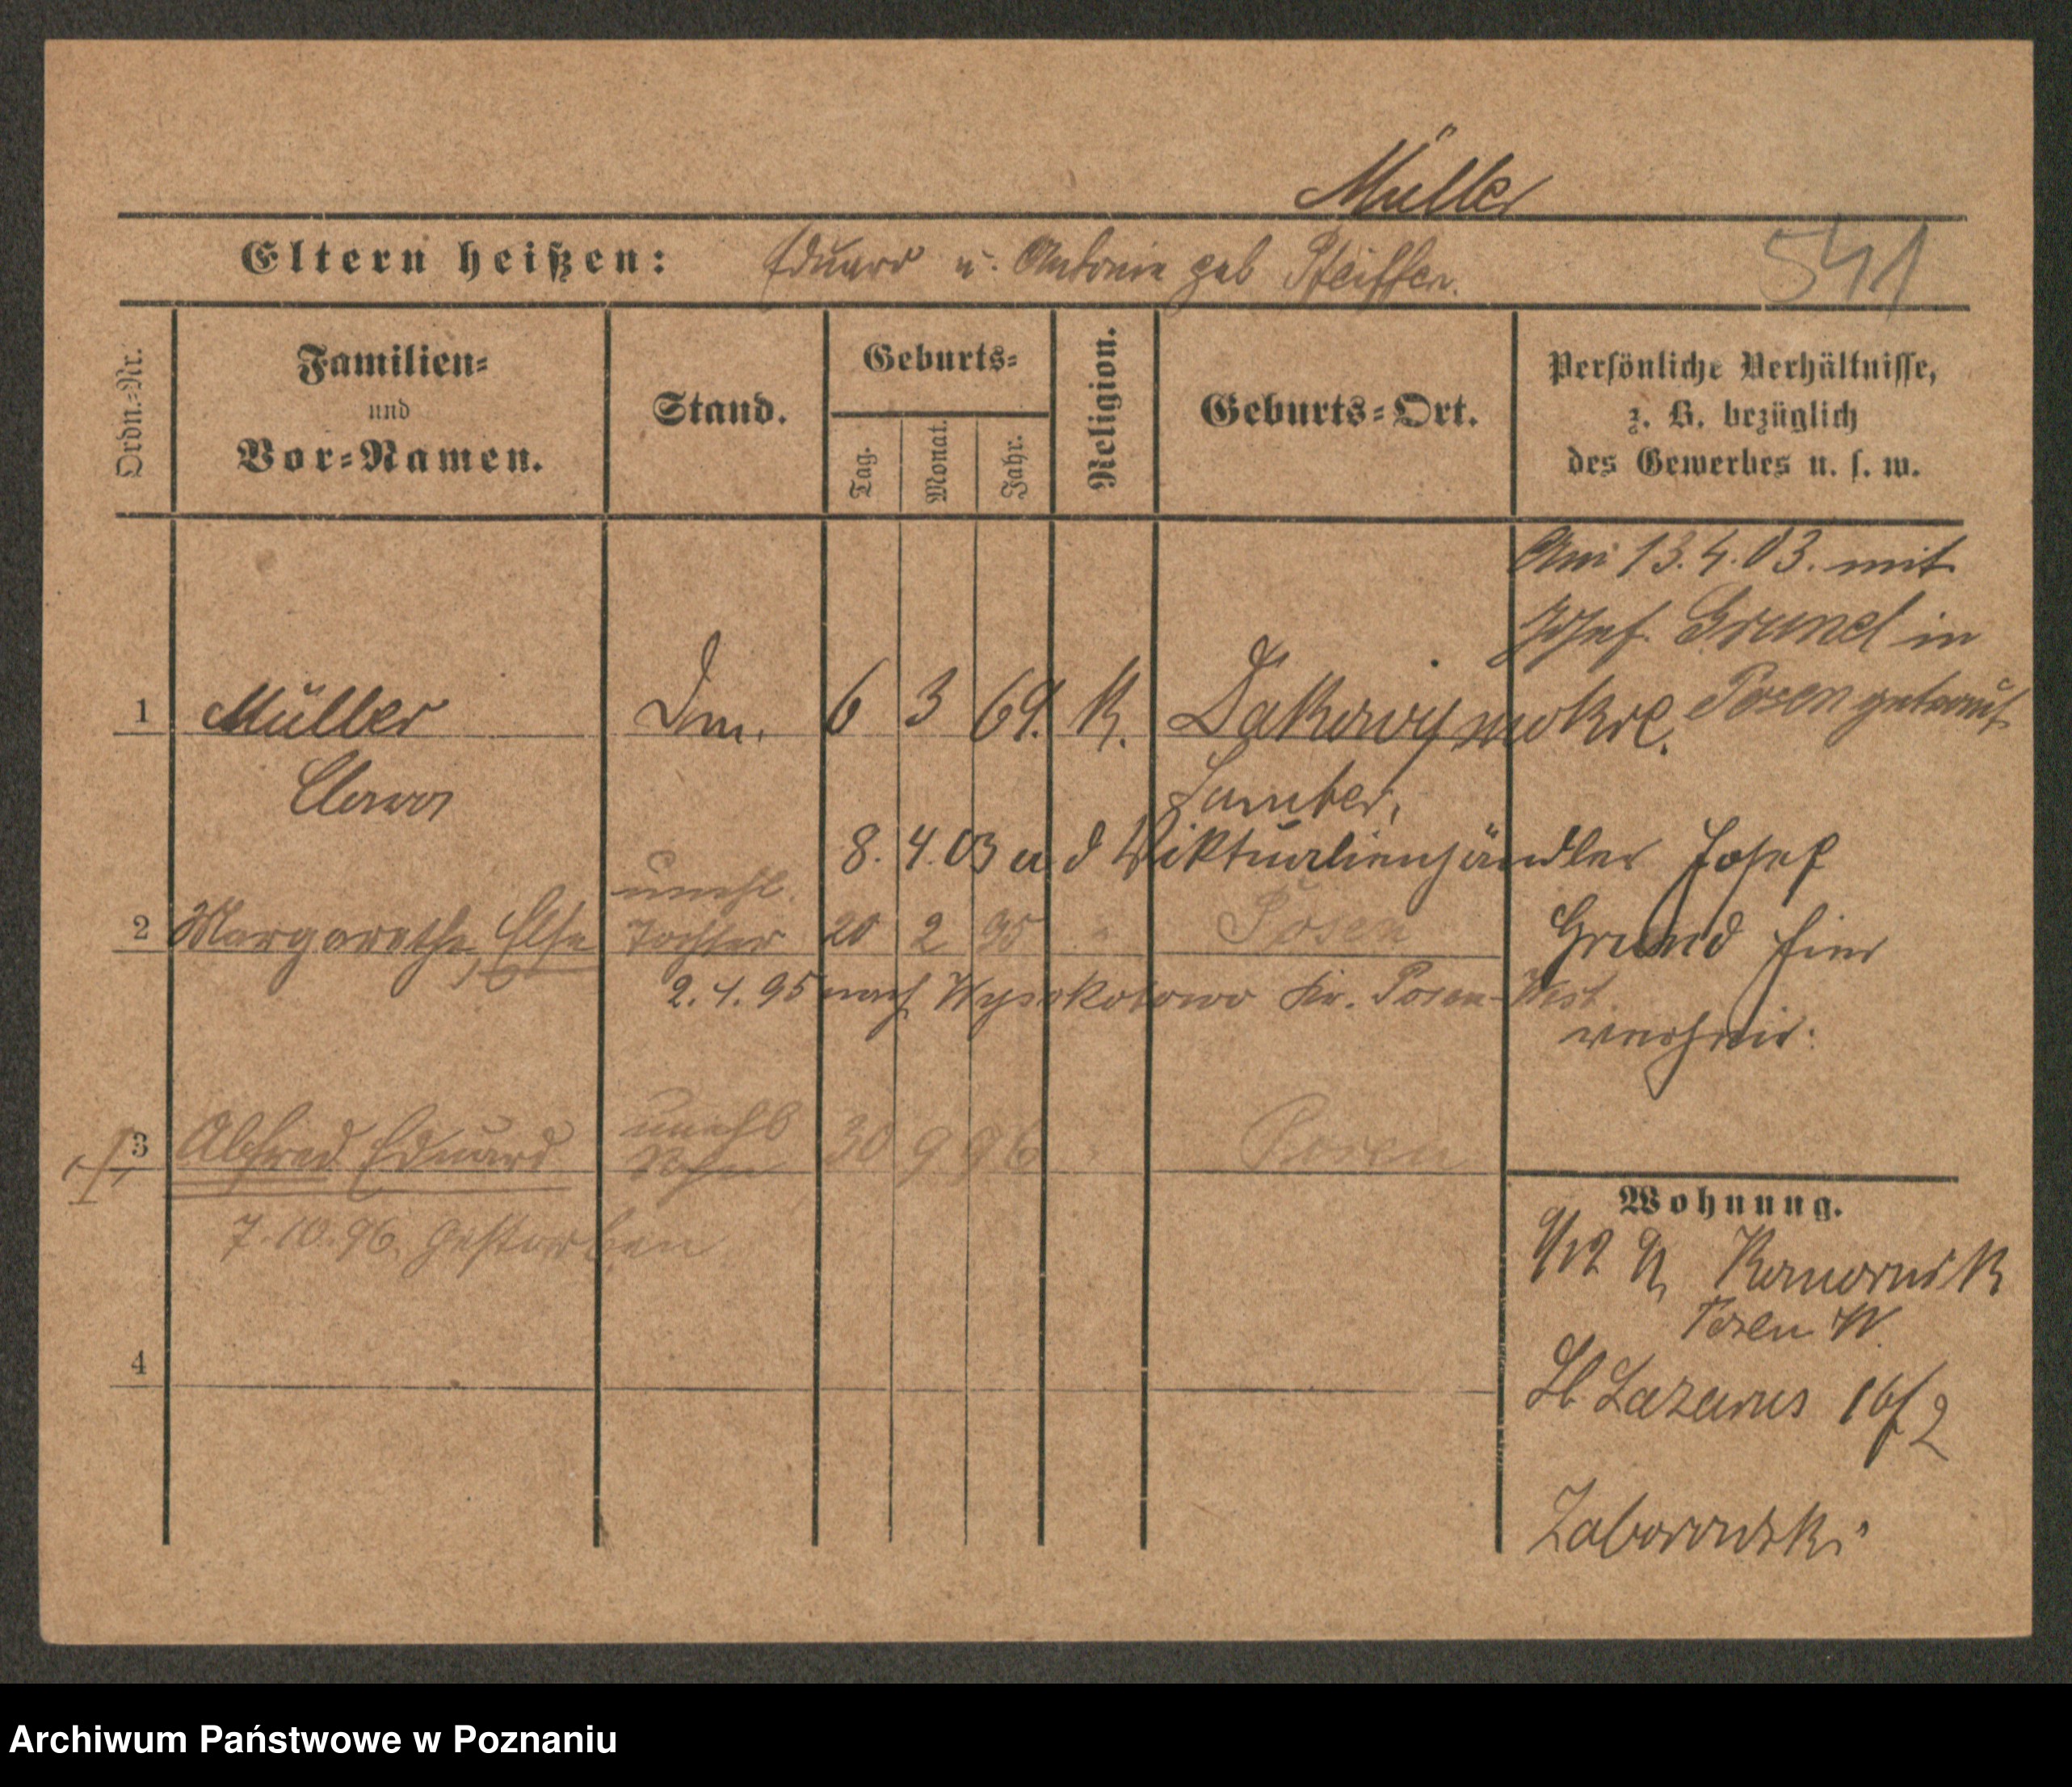 Müller
Eltern heißen: Eduard u. Antonie geb Pfeiffer.
541
Ordn.-Nr.
Familien-
und
Vor-Namen.
Stand.
Geburts-
Tag.
Monat.
Jahr.
Religion.
Geburts-Ort.
Persönliche Verhältnisse,
z. B. bezüglich
des Gewerbes u. s. w.
Am 13.4.03. mit
Josef Grund in
Posen getraut
1 Müller 6 3 69. K. Dakowy mokre.
Clara
8. 4. 03 a. d Viktualienhändler Josef
Grund hier
verheir:
unehl.
2 Margarethe, Else Tochter 20 2 95 " Posen
2.4.95 nach Wysokotowo Kr. Posen-West
unehl
3 Alfred Eduard Sohn 30 9 96 " Posen
7.10.96. gestorben
4
Wohnung.
9/12 Komornik
Posen W.
St. Lazarus 16 f 2
Zaborowski
Archiwum Państwowe w Poznaniu